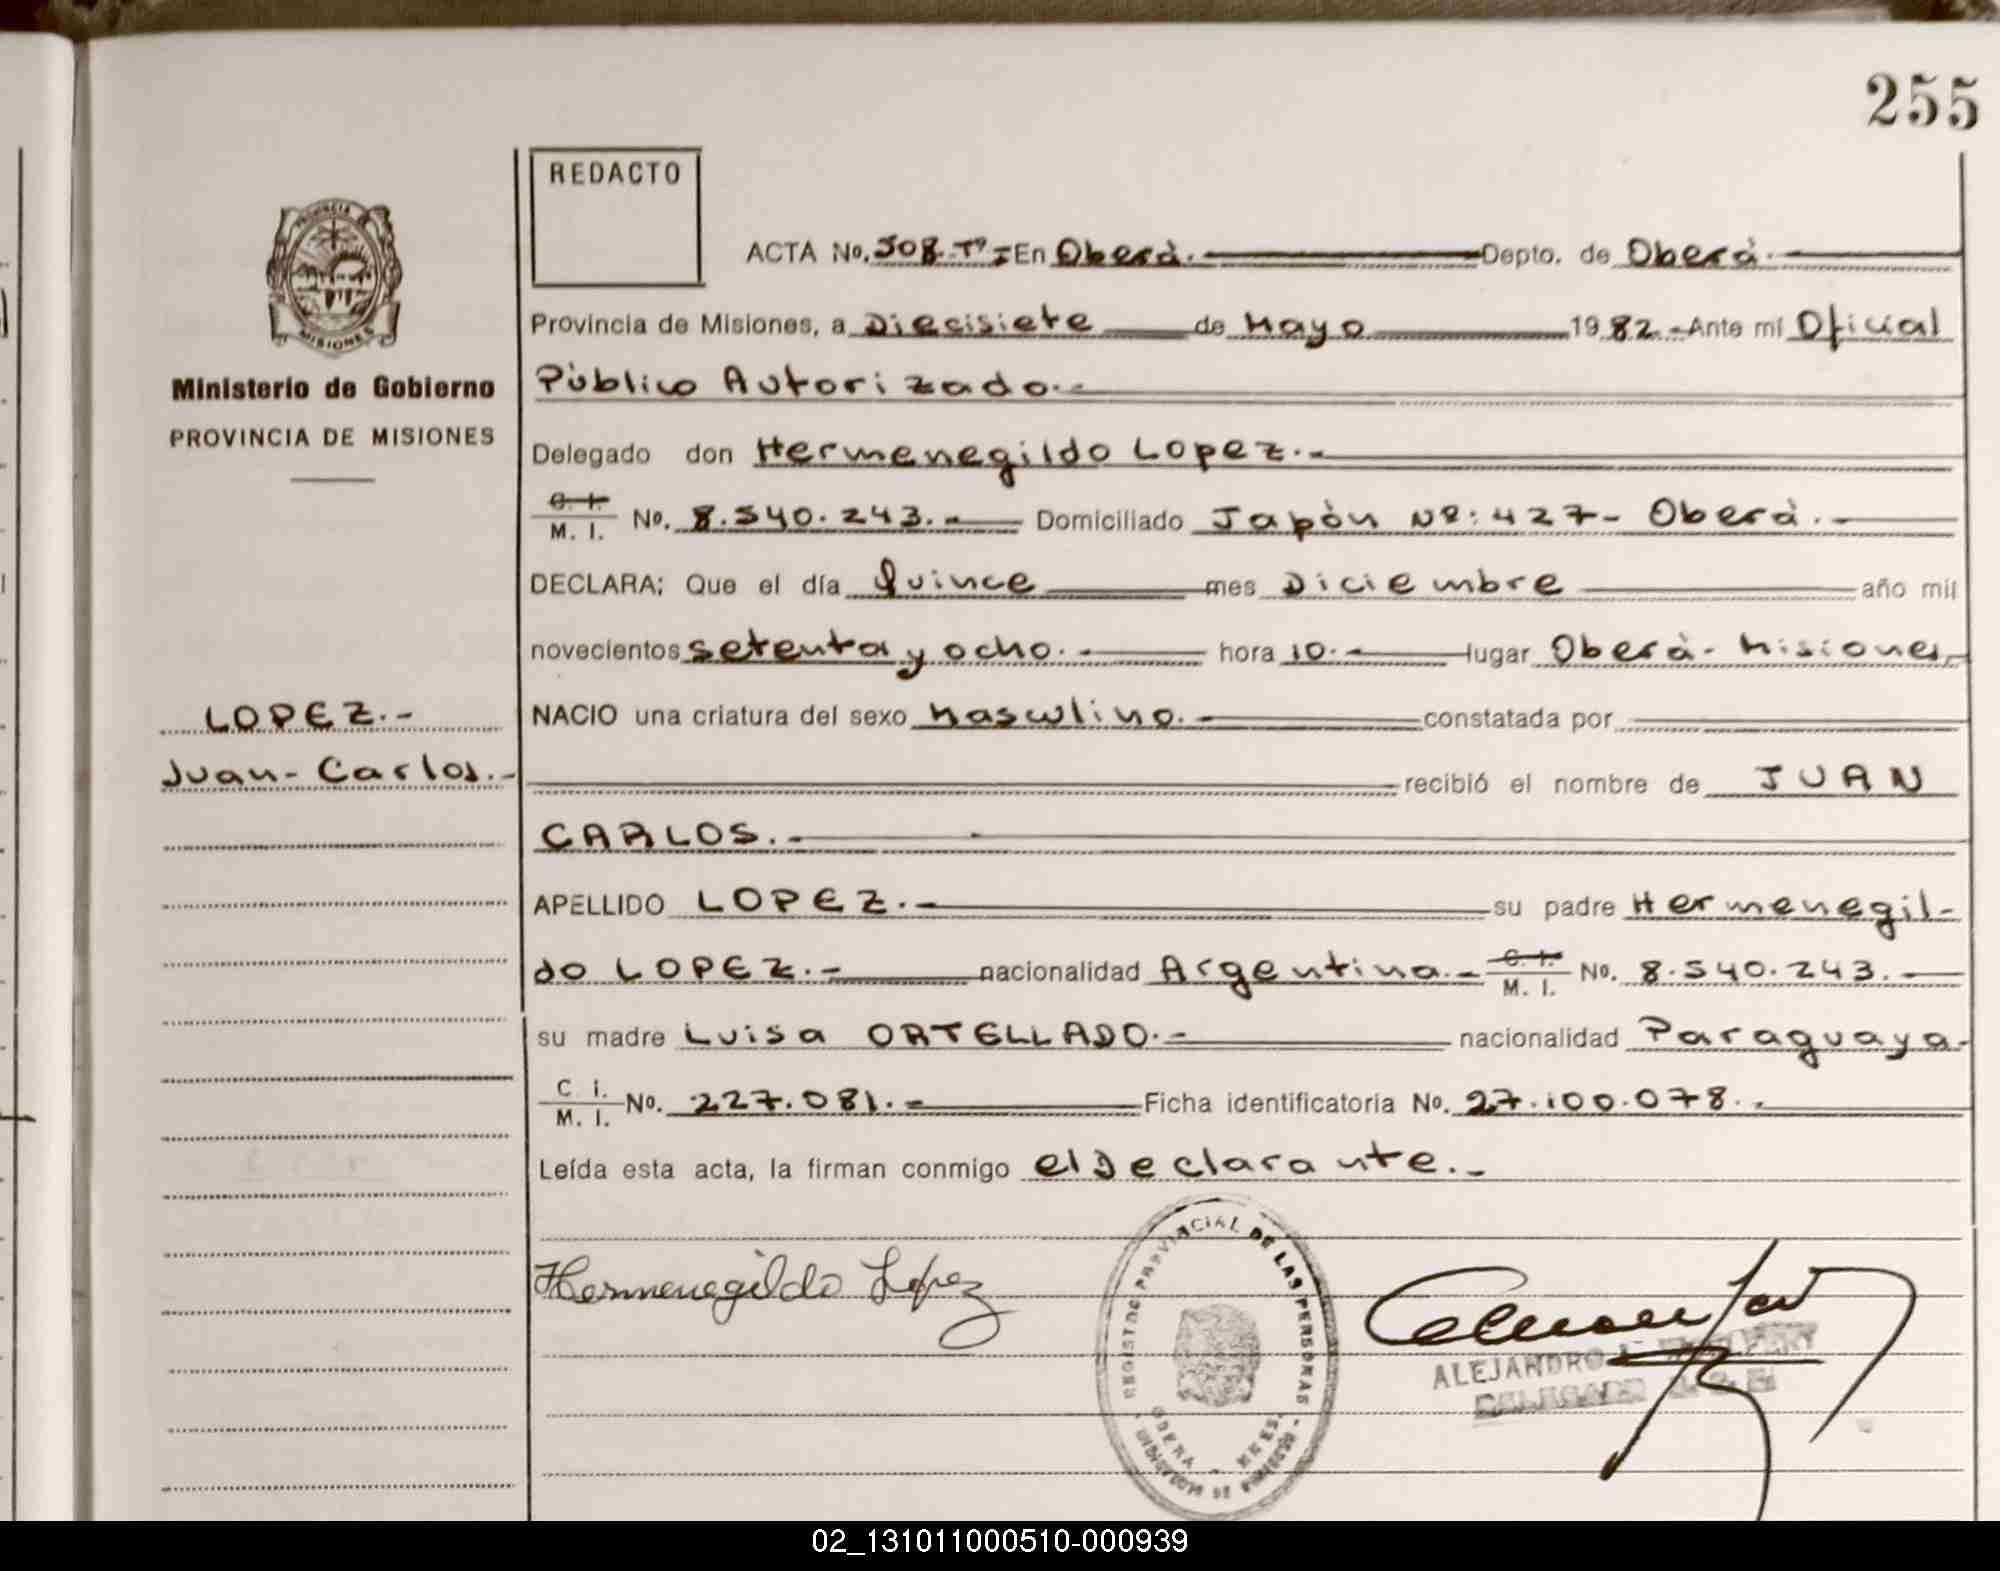 255
REDACTO
ACTA No. 508-Tº- En Oberá.- Depto. de Oberá.-
Provincia de Misiones, a Diecisiete de Mayo 1982.- Ante mi Oficial
Público Autorizado.-
Ministerio de Gobierno
PROVINCIA DE MISIONES
PROVINCIA DE
MISIONES
Delegado don Hermenegildo Lopez.-
C. I.
M. I. No. 8.540.243.- Domiciliado Japón Nº: 427- Oberá.-
DECLARA; Que el día Quince mes Diciembre año mil
novecientos setenta y ocho.- hora 10.- lugar Oberá- Misiones,
LOPEZ.-
NACIO una criatura del sexo Masculino.- constatada por
Juan-Carlos.-
recibió el nombre de JUAN
CARLOS.-
APELLIDO LOPEZ.- su padre Hermenegil-
do LOPEZ.- nacionalidad Argentina.- C. I.
M. I. No. 8.540.243.-
su madre Luisa ORTELLADO.- nacionalidad Paraguaya-
C. I.
M. I. No. 227.081.- Ficha identificatoria No. 27.100.078.-
Leída esta acta, la firman conmigo el Declarante.-
Hermenegildo Lopez
REGISTRO PROVINCIAL DE LAS PERSONAS
OBERA - MNES.
ALEJANDRO
DELEGADO
02_131011000510-000939